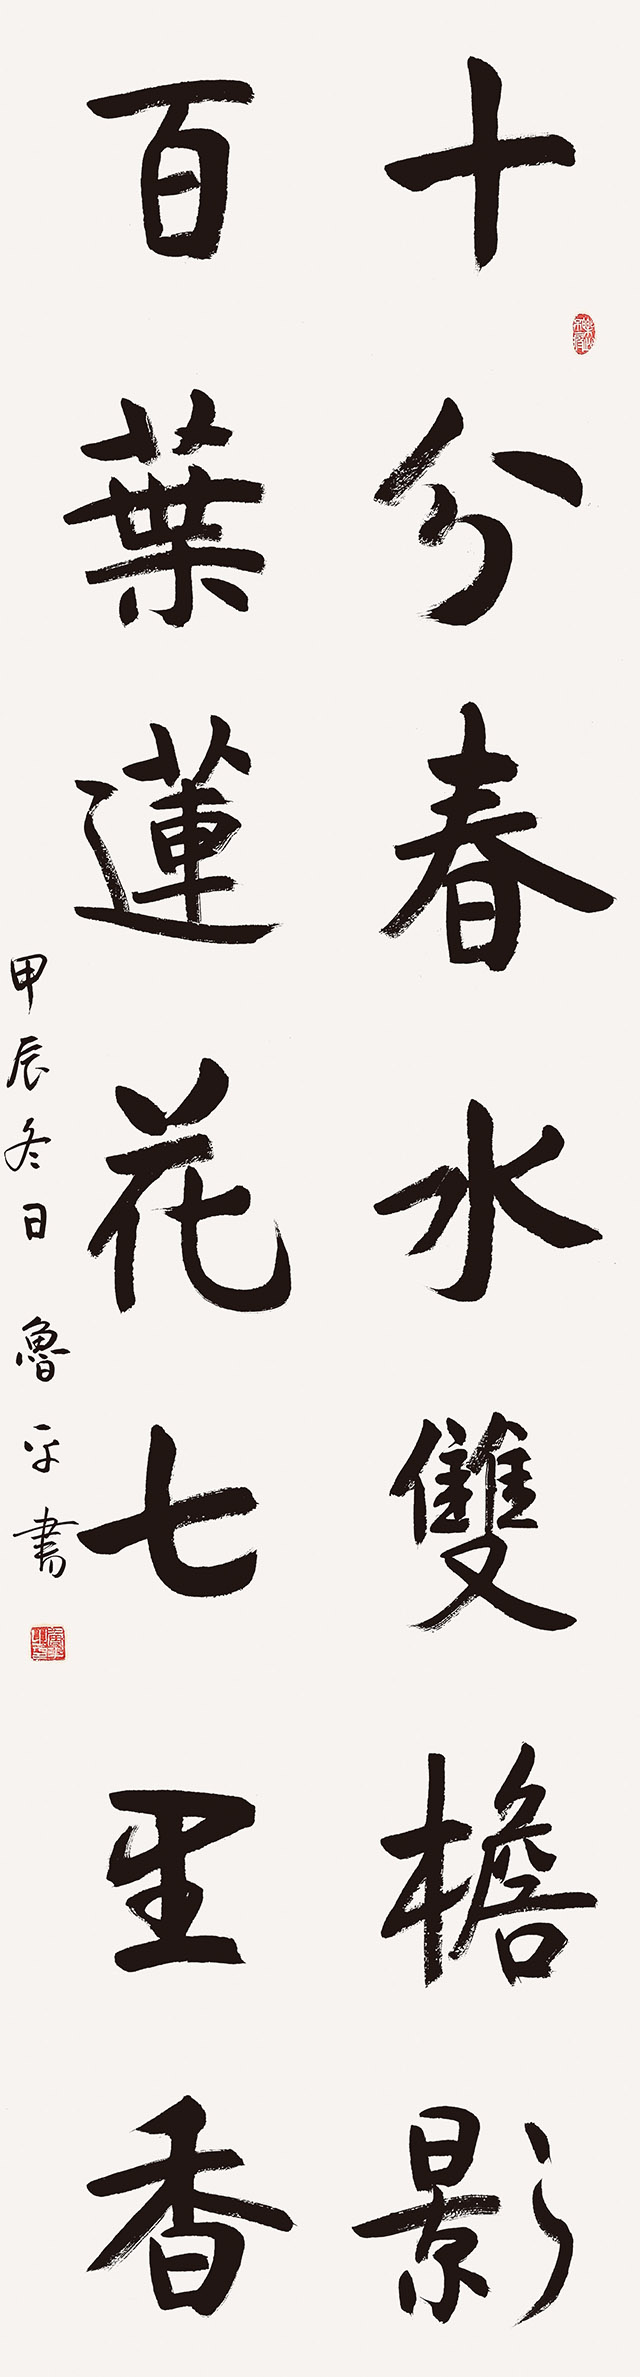 十分春水雙檐影
百葉蓮花七里香
甲辰冬日 魯平書